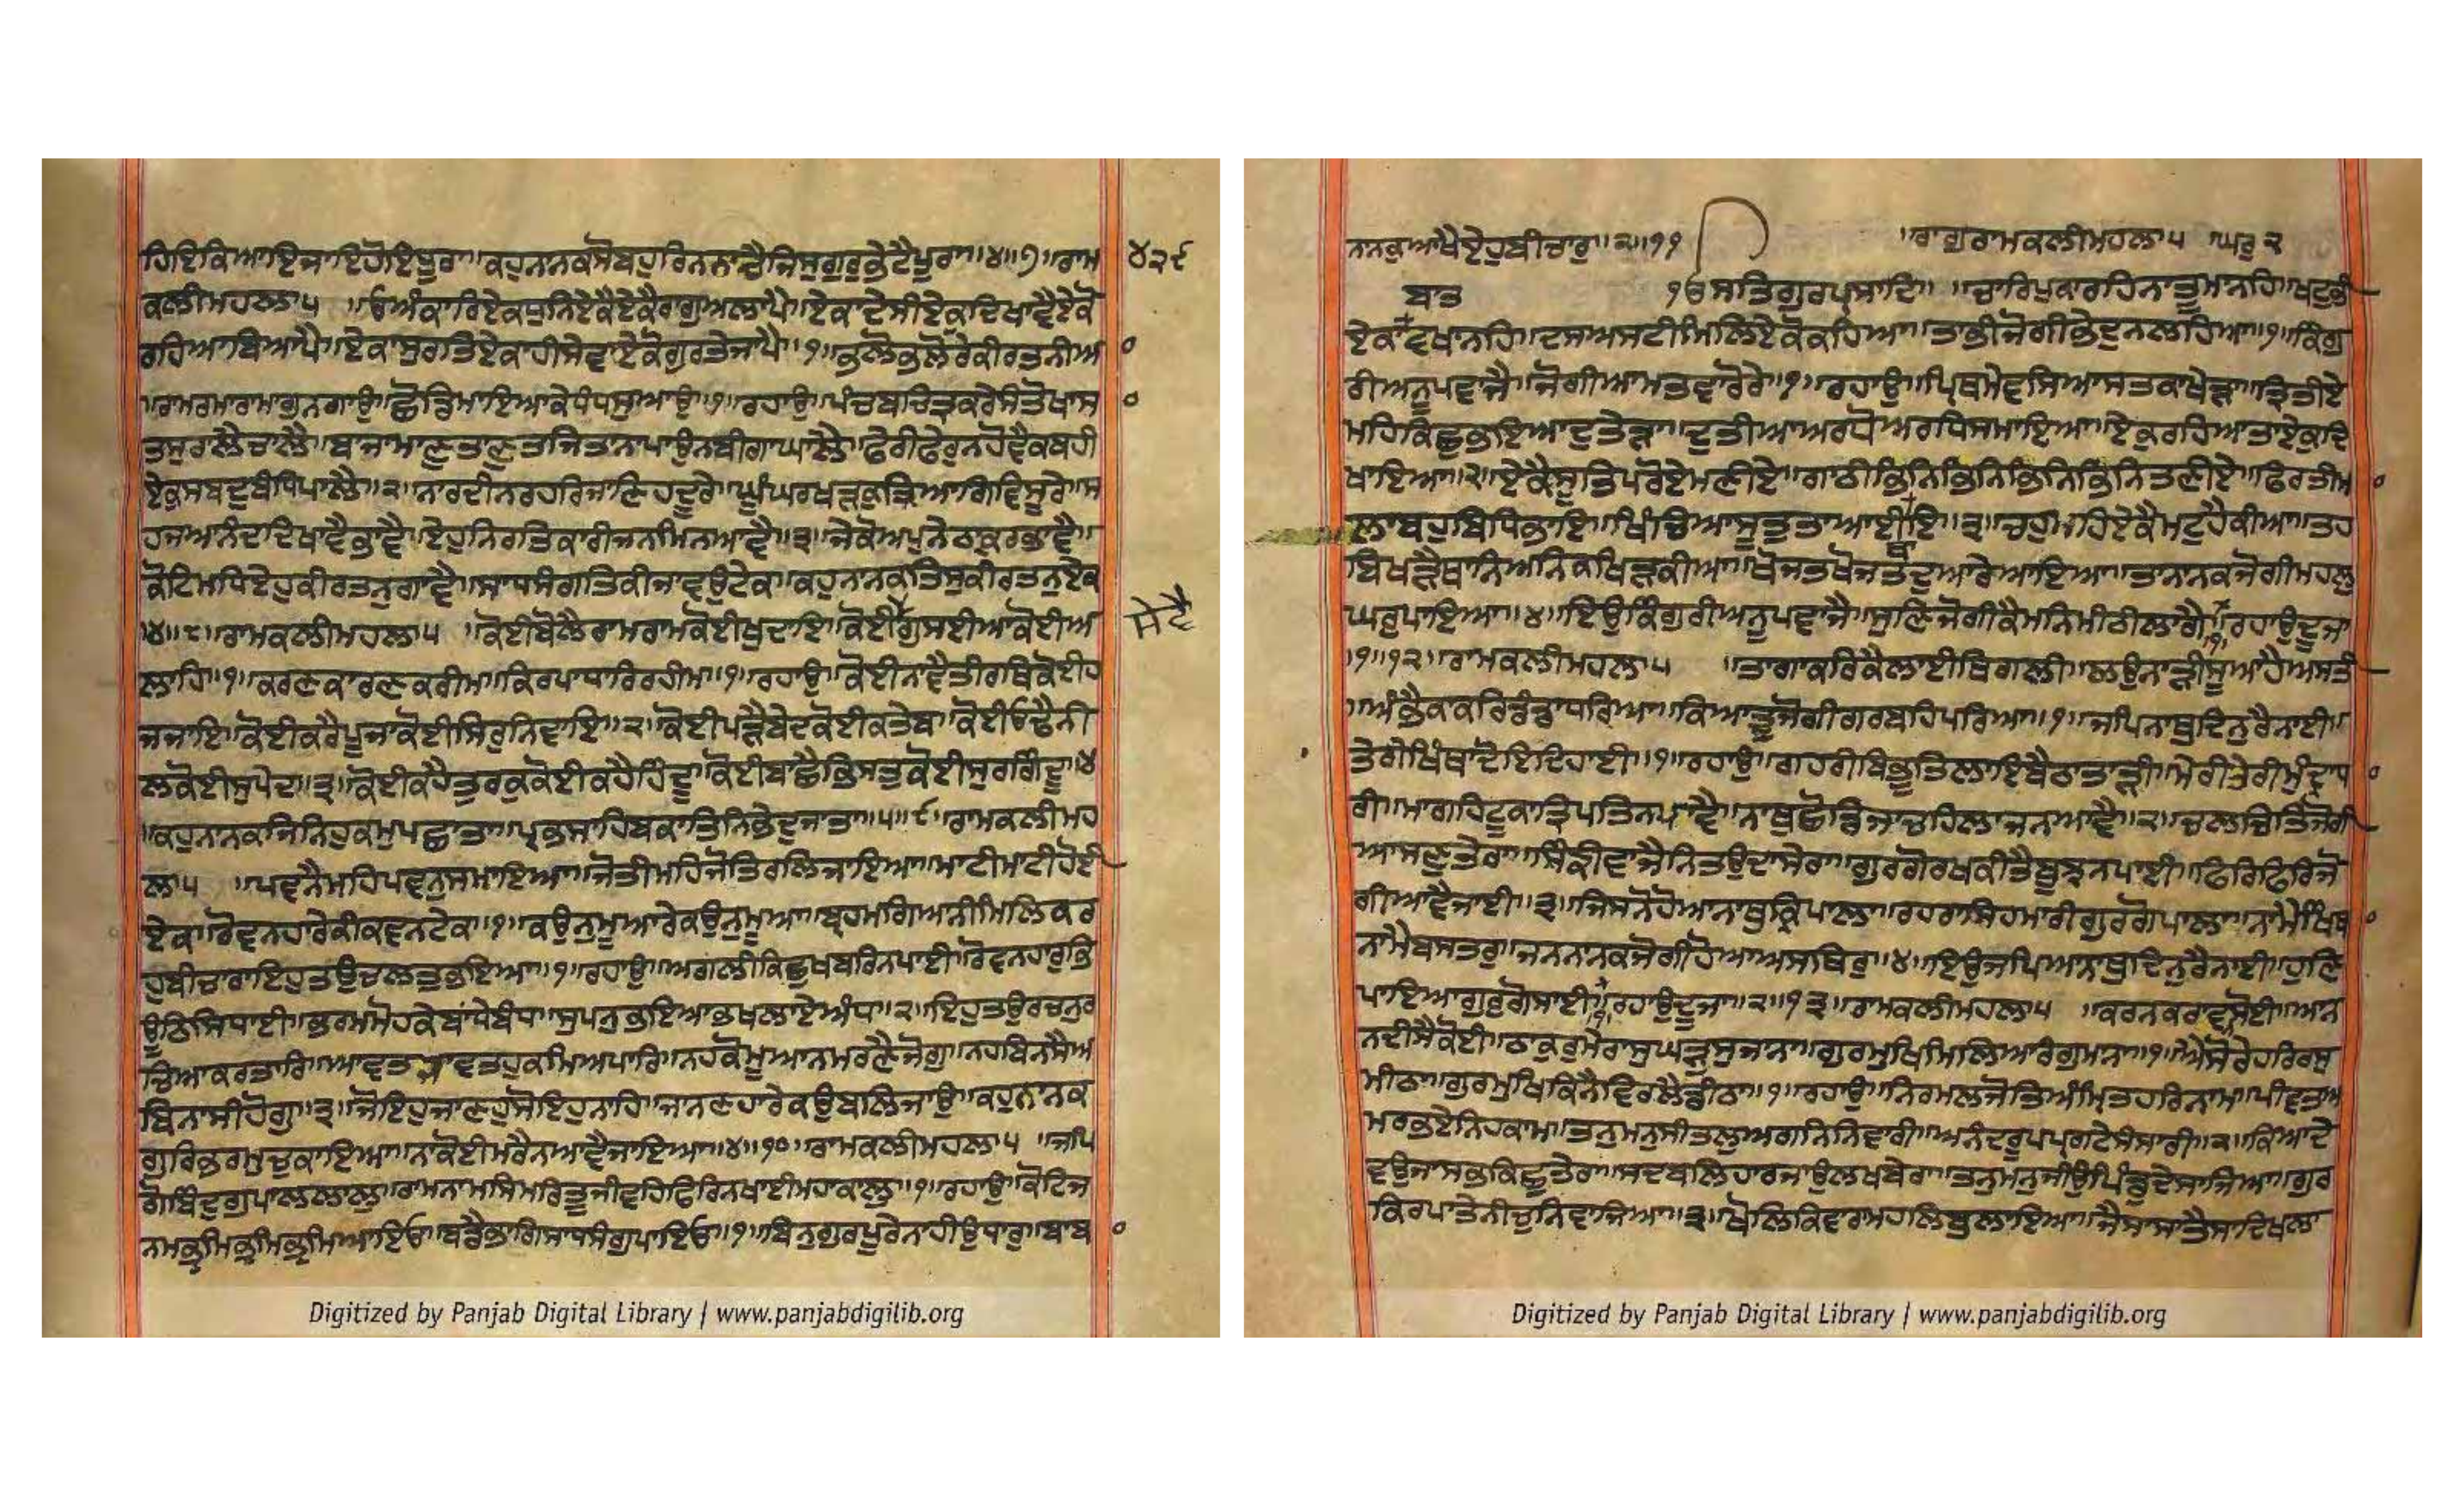 ਹਿਇਕਿਆਇਜਾਇਹੋਇਖੁਰਾ॥ਕਹੁਨਨਕਸੋਬਹੁਰਿਨਨਾਚੈਜਿਸੁਗੁਰੁਭੇਟੈਪੂਰਾ॥੪॥੭॥ਰਾਮ ੪੨੯
ਕਲੀਮਹਲਾ੫ ॥ਓਅੰਕਾਰਿਏਕਧੁਨਿਏਕੈਏਕੈਰਾਗੁਅਲਾਪੈ॥ਏਕਾਦੇਸੀਏਕੁਦਿਖਾਵੈਏਕੋ
ਰਹਿਆਬਿਆਪੈ॥ਏਕਾਸੁਰਤਿਏਕਾਹੀਸੇਵਾਏਕੋਗੁਰਤੇਜਾਪੈ॥੧॥ਭਲੋਭਲੋਰੇਕੀਰਤਨੀਅ
॥ਰਾਮਰਮਾਰਾਮਾਗੁਨਗਾਉ॥ਛੋਡਿਮਾਇਆਕੇਧੰਧਸੁਆਉ॥੧॥ਰਹਾਉ॥ਪੰਚਬਚਿਤ੍ਰਕਰੇਸੰਤੋਖਾਸ
ਤਸੁਰਲੈਚਾਲੈ॥ਬਾਜਾਮਾਣੁਤਾਣੁਤਜਿਤਾਨਾਪਾਉਨਬੀਗਾਘਾਲੈ॥ਫੇਰੀਫੇਰੁਨਹੋਵੈਕਬਹੀ
ਏਕੁਸਬਦੁਬੰਧਿਪਾਲੈ॥੨॥ਨਾਰਦੀਨਰਹਰਿਜਾਣਿਹਦੂਰੇ॥ਘੂੰਘਰਖੜਕੁਤਿਆਗਿਵਿਸੂਰੇ॥ਸ
ਹਜਆਨੰਦਦਿਖਾਵੈਭਾਵੈ॥ਏਹੁਨਿਰਤਿਕਾਰੀਜਨਮਿਨਆਵੈ॥੩॥ਜੇਕੋਅਪੁਨੇਠਾਕੁਰਭਾਵੈ॥
ਕੋਟਿਮਧਿਏਹੁਕੀਰਤਨੁਗਾਵੈ॥ਸਾਧਸੰਗਤਿਕੀਜਾਵਉਟੇਕ॥ਕਹੁਨਨਕਤਿਸੁਕੀਰਤਨੁਏਕ
॥੪॥੮॥ਰਾਮਕਲੀਮਹਲਾ੫ ॥ਕੋਈਬੋਲੈਰਾਮਰਾਮਕੋਈਖੁਦਾਇ॥ਕੋਈਗੁਸਈਆਕੋਈਅ ਸੇਵੈ
ਲਾਹਿ॥੧॥ਕਰਣਕਾਰਣਕਰੀਮ॥ਕਿਰਪਾਧਾਰਿਰਹੀਮ॥੧॥ਰਹਾਉ॥ਕੋਈਨਾਵੈਤੀਰਥਿਕੋਈਹ
ਜਜਾਇ॥ਕੋਈਕਰੈਪੂਜਾਕੋਈਸਿਰੁਨਿਵਾਇ॥੨॥ਕੋਈਪੜੈਬੇਦਕੋਈਕਤੇਬ॥ਕੋਈਓਢੈਨੀ
ਲਕੋਈਸੁਪੇਦ॥੩॥ਕੋਈਕਹੈਤੁਰਕੁਕੋਈਕਹੈਹਿੰਦੂ॥ਕੋਈਬਾਛੈਭਿਸਤੁਕੋਈਸੁਰਗਿੰਦੂ॥੪
॥ਕਹੁਨਨਕਜਿਨਿਹੁਕਮੁਪਛਾਤਾ॥ਪ੍ਰਭਸਾਹਿਬਕਾਤਿਨਿਭੇਦੁਜਾਤਾ॥੫॥੯॥ਰਾਮਕਲੀਮਹ
ਲਾ੫ ॥ਪਵਨੈਮਹਿਪਵਨੁਸਮਾਇਆ॥ਜੋਤੀਮਹਿਜੋਤਿਰਲਿਜਾਇਆ॥ਮਾਟੀਮਾਟੀਹੋਈ
ਏਕ॥ਰੋਵਨਹਾਰੇਕੀਕਵਨਟੇਕ॥੧॥ਕਉਨੁਮੂਆਰੇਕਉਨੁਮੂਆ॥ਬ੍ਰਹਮਗਿਆਨੀਮਿਲਿਕਰ
ਹੁਬੀਚਾਰਾਇਹੁਤਉਚਲਤੁਭਇਆ॥੧॥ਰਹਾਉ॥ਅਗਲੀਕਿਛੁਖਬਰਿਨਪਾਈ॥ਰੋਵਨਹਾਰੁਭਿ
ਊਠਿਸਿਧਾਈ॥ਭਰਮਮੋਹਕੇਬਾਂਧੇਬੰਧ॥ਸੁਪਨੁਭਇਆਭਖਲਾਏਅੰਧ॥੨॥ਇਹੁਤਉਰਚਨੁਰ
ਚਿਆਕਰਤਾਰਿ॥ਆਵਤਜਾਵਤਹੁਕਮਿਅਪਾਰਿ॥ਨਹਕੋਮੂਆਨਮਰਣੈਜੋਗੁ॥ਨਹਬਿਨਸੈਅ
ਬਿਨਾਸੀਹੋਗੁ॥੩॥ਜੋਇਹੁਜਾਣਹੁਸੋਇਹੁਨਾਹਿ॥ਜਾਨਣਹਾਰੇਕਉਬਲਿਜਾਉ॥ਕਹੁਨਾਨਕ
ਗੁਰਿਭਰਮੁਚੁਕਾਇਆ॥ਨਾਕੋਈਮਰੈਨਆਵੈਜਾਇਆ॥੪॥੧੦॥ਰਾਮਕਲੀਮਹਲਾ੫ ॥ਜਪਿ
ਗੋਬਿੰਦੁਗੁਪਾਲਲਾਲੁ॥ਰਾਮਨਾਮਸਿਮਰਿਤੂਜੀਵਹਿਫਿਰਿਨਖਾਈਮਹਾਕਾਲੁ॥੧॥ਰਹਾਉ॥ਕੋਟਿਜ
ਨਮਭ੍ਰਮਿਭ੍ਰਮਿਭ੍ਰਮਿਆਇਓ॥ਬਡੈਭਾਗਿਸਾਧਸੰਗੁਪਾਇਓ॥੧॥ਬਿਨੁਗੁਰਪੂਰੇਨਾਹੀਉਧਾਰੁ॥ਬਾਬ
Digitized by Panjab Digital Library | www.panjabdigilib.org
ਨਾਨਕੁਆਖੈਏਹੁਬੀਚਾਰੁ॥੨॥੧੧ ॥ਰਾਗੁਰਾਮਕਲੀਮਹਲਾ੫ ॥ਘਰੁ੨
੧ਓਸਤਿਗੁਰਪ੍ਰਸਾਦਿ॥ ॥ਚਾਰਿਪੁਕਾਰਹਿਨਾਤੂਮਾਨਹਿ॥ਖਟੁਭੀ
ਬਾਤ
ਏਕਾਵਖਾਨਹਿ॥ਦਸਅਸਟੀਮਿਲਿਏਕੋਕਹਿਆ॥ਤਾਭੀਜੋਗੀਭੇਦੁਨਲਹਿਆ॥੧॥ਕਿੰਗੁ
ਰੀਅਨੂਪਵਾਜੈ॥ਜੋਗੀਆਮਤਵਾਰੋਰੇ॥੧॥ਰਹਾਉ॥ਪ੍ਰਿਥਮੇਵਸਿਆਸਤਕਾਖੇੜਾ॥ਤ੍ਰਿਤੀਏ
ਮਹਿਕਿਛੁਭਇਆਦੁਤੇੜਾ॥ਦੁਤੀਆਅਰਧੋਅਰਧਿਸਮਾਇਆ॥ਏਕੁਰਹਿਆਤਾਏਕੁਦਿ
ਖਾਇਆ॥੨॥ਏਕੈਸੂਤਿਪਰੋਏਮਣੀਏ॥ਗਾਠੀਭਿਨਿਭਿਨਿਭਿਨਿਭਿਨਿਤਣੀਏ॥ਫਿਰਤੀਮ
ਲਾਬਹੁਬਿਧਿਭਾਇ॥ਖਿੰਚਿਆਸੂਤੁਤਾਆਈਇ॥੩॥ਚਹੁਮਹਿਏਕੈਮਟੁਹੈਕੀਆ॥ਤਹ
ਬਿਖੜੇਥਾਨਿਅਨਿਕਖਿੜਕੀਆ॥ਖੋਜਤਖੋਜਤਦੁਆਰੇਆਇਆ॥ਤਾਨਾਨਕਜੋਗੀਮਹਲੁ
ਥਾ
ਘਰੁਪਾਇਆ॥੪॥ਇਉਕਿੰਗੁਰੀਅਨੂਪਵਾਜੈ॥ਸੁਣਿਜੋਗੀਕੈਮਨਿਮੀਠੀਲਾਗੈ॥੧॥ਰਹਾਉਦੂਜਾ
॥੧॥੧੨॥ਰਾਮਕਲੀਮਹਲਾ੫ ॥ਤਾਗਾਕਰਿਕੈਲਾਈਥਿਗਲੀ॥ਲਉਨਾੜੀਸੂਆਹੈਅਸਤੀ
॥ਅੰਭੈਕਾਕਰਿਡੰਡਾਧਰਿਆ॥ਕਿਆਤੂਜੋਗੀਗਰਬਹਿਪਰਿਆ॥੧॥ਜਪਿਨਾਥੁਦਿਨੁਰੈਨਾਈ॥
ਤੇਰੀਖਿੰਥਾਦੋਇਦਿਹਾਈ॥੧॥ਰਹਾਉ॥ਗਹਰੀਬਿਭੂਤਿਲਾਇਬੈਠਾਤਾੜੀ॥ਮੇਰੀਤੇਰੀਮੁੰਦ੍ਰਾਧ
ਰੀ॥ਮਾਗਹਿਟੂਕਾਤ੍ਰਿਪਤਿਨਪਾਵੈ॥ਨਾਥੁਛੋਡਿਜਾਚਹਿਲਾਜਨਆਵੈ॥੨॥ਚਲਚਿਤਜੋਗੀ
ਆਸਣੁਤੇਰਾ॥ਸਿੰਙੀਵਾਜੈਨਿਤਉਦਾਸੇਰਾ॥ਗੁਰਗੋਰਖਕੀਤੈਬੂਝਨਪਾਈ॥ਫਿਰਿਫਿਰਿਜੋ
ਗੀਆਵੈਜਾਈ॥੩॥ਜਿਸਨੋਹੋਆਨਾਥੁਕ੍ਰਿਪਾਲਾ॥ਰਹਰਾਸਿਹਮਾਰੀਗੁਰਗੋਪਾਲਾ॥ਨਾਮੈਖਿੰਥ
ਨਾਮੈਬਸਤਰੁ॥ਜਨਨਾਨਕਜੋਗੀਹੋਆਅਸਥਿਰੁ॥੪॥ਇਉਜਪਿਆਨਾਥੁਦਿਨੁਰੈਨਾਈ॥ਹੁਣਿ
ਪਾਇਆਗੁਰੁਗੋਸਾਈ॥੧॥ਰਹਾਉਦੂਜਾ॥੨॥੧੩॥ਰਾਮਕਲੀਮਹਲਾ੫ ॥ਕਰਨਕਰਾਵਸੋਈ॥ਆਨ
ਨਦੀਸੈਕੋਈ॥ਠਾਕੁਰੁਮੇਰਾਸੁਘੜੁਸੁਜਾਨਾ॥ਗੁਰਮੁਖਿਮਿਲਿਆਰੰਗੁਮਾਨਾ॥੧॥ਐਸੋਰੇਹਰਿਰਸੁ
ਮੀਠਾ॥ਗੁਰਮੁਖਿਕਿਨੈਵਿਰਲੈਡੀਠਾ॥੧॥ਰਹਾਉ॥ਨਿਰਮਲਜੋਤਿਅੰਮ੍ਰਿਤਹਰਿਨਾਮ॥ਪੀਵਤਅ
ਮਰਭਏਨਿਹਕਾਮ॥ਤਨੁਮਨੁਸੀਤਲੁਅਗਨਿਨਿਵਾਰੀ॥ਅਨੰਦਰੂਪਪ੍ਰਗਟੇਸੰਸਾਰੀ॥੨॥ਕਿਆਦੇ
ਵਉਜਾਸਭੁਕਿਛੁਤੇਰਾ॥ਸਦਬਲਿਹਾਰਜਾਉਲਖਬੇਰਾ॥ਤਨੁਮਨੁਜੀਉਪਿੰਡੁਦੇਸਾਜਿਆ॥ਗੁਰ
ਕਿਰਪਾਤੇਨੀਚੁਨਿਵਾਜਿਆ॥੩॥ਖੋਲਿਕਿਵਾਰਾਮਹਲਿਬੁਲਾਇਆ॥ਜੈਸਾਸਾਤੈਸਾਦਿਖਲਾ
Digitized by Panjab Digital Library | www.panjabdigilib.org